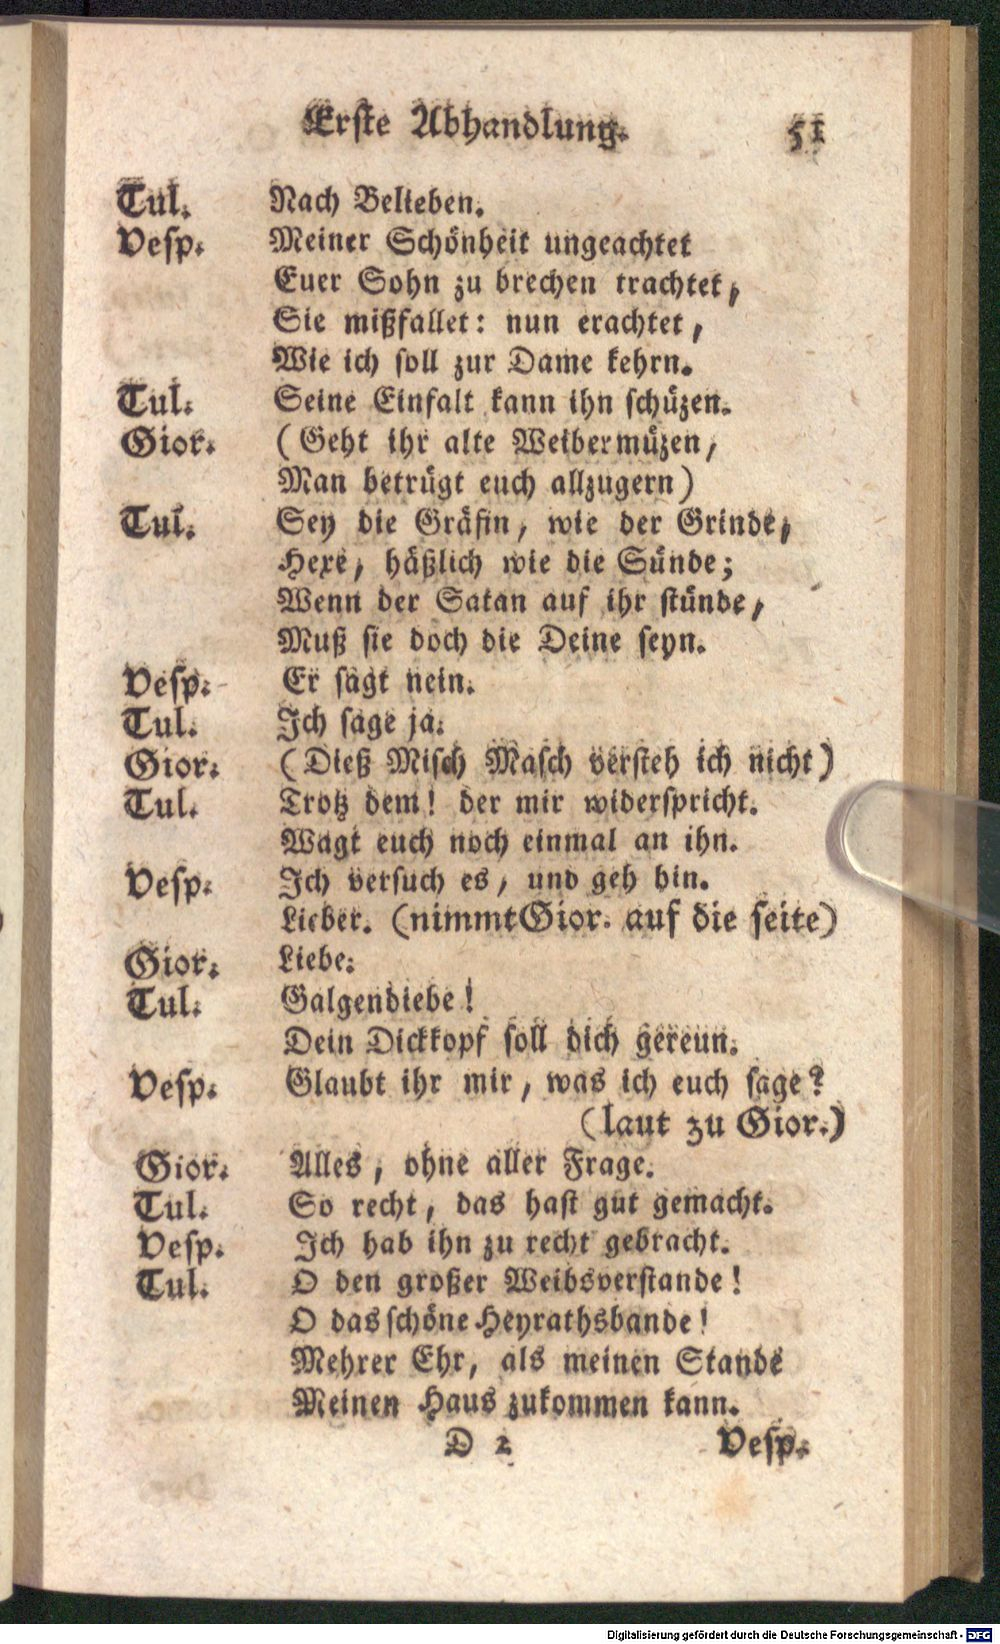 Erste Abhandlung. 51
Tul. Nach Belieben.
Vesp. Meiner Schönheit ungeachtet
Euer Sohn zu brechen trachtet,
Sie mißfallet: nun erachtet,
Wie ich soll zur Dame kehrn.
Tul. Seine Einfalt kann ihn schüzen.
Gior. (Geht ihr alte Weibermüzen,
Man betrügt euch allzugern)
Tul. Sey die Gräfin, wie der Grinde,
Hexe, häßlich wie die Sünde;
Wenn der Satan auf ihr stünde,
Muß sie doch die Deine seyn.
Vesp. Er sagt nein.
Tul. Ich sage ja.
Gior. (Dieß Misch Masch versteh ich nicht)
Tul. Trotz dem! der mir widerspricht.
Wagt euch noch einmal an ihn.
Vesp. Ich versuch es, und geh hin.
Lieber. (nimmt Gior. auf die seite)
Gior. Liebe.
Tul. Galgendiebe!
Dein Dickkopf soll dich gereun.
Vesp. Glaubt ihr mir, was ich euch sage?
(laut zu Gior.)
Gior. Alles, ohne aller Frage.
Tul. So recht, das hast gut gemacht.
Vesp. Ich hab ihn zu recht gebracht.
Tul. O den großer Weibsverstande!
O das schöne Heyrathsbande!
Mehrer Ehr, als meinen Stande
Meinen Haus zukommen kann.
D 2 Vesp.
Digitalisierung gefördert durch die Deutsche Forschungsgemeinschaft - DFG